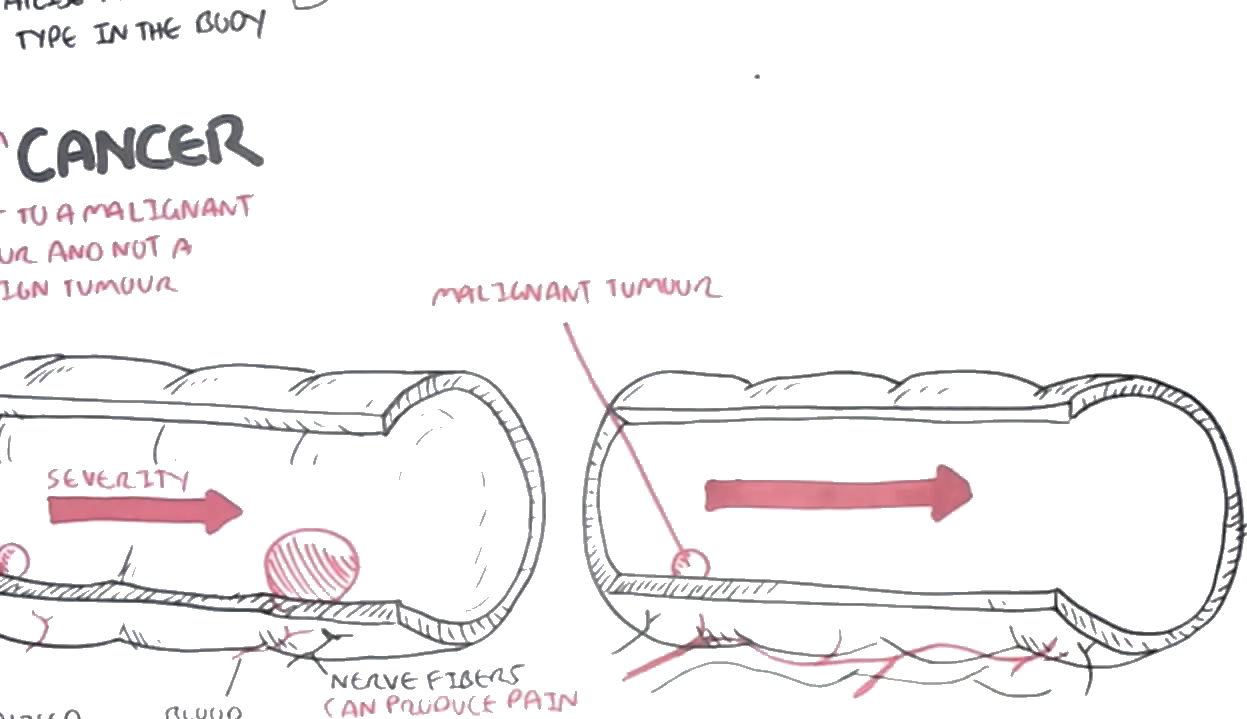 TYPE IN THE BODY
CANCER
TO A MALIGNANT
AND NOT A
TUMOUR
MALIGNANT TUMOUR
SEVERITY
NERVE FIBERS
CAN PRODUCE PAIN
BLOOD